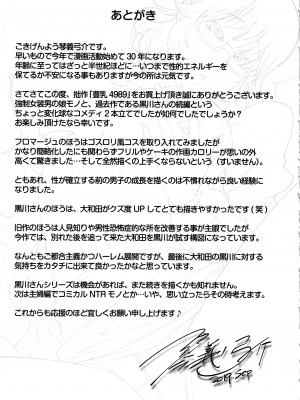 あとがき
ごきげんよう琴義弓介です。
早いもので今年で漫画活動始めて30年になります。
年齢に至ってはざっと半世紀ほどに…いつまで性的エネルギーを
保てるか不安になる事もありますが今の所は元気です。
さてさてこの度、拙作『蕾乳4989』をお買上げ頂き誠にありがとうございます。
強制女装男の娘モノと、過去作である黒川さんの続編という
ちょっと変化球なコメディ2本立てでしたが如何でしたでしょうか？
お楽しみ頂けたなら幸いです。
フロマージュのほうはゴスロリ風コスを取り入れてみましたが
かなり簡略化したにも関わらずフリルやケーキの作画カロリーが思いの外
高くて驚きました…そして全然描くの上手くならないという（すいません）。
ともあれ、性が確立する前の男子の成長を描くのは不慣れながら良い経験に
なりました。
黒川さんのほうは、大和田がクズ度UPしてとても描きやすかったです（笑）
旧作のほうは人見知りや男性恐怖症的な所を改善する事が主眼でしたが
今作では、別れた後を追って来た大和田を黒川が試す構図になっています。
なんともご都合主義かつハーレム展開ですが、最後に大和田の黒川に対する
気持ちをカタチに出来て良かったかなと思っています。
黒川さんシリーズは機会があれば、また続きを描くかも知れません。
次は主婦編でコミカルNTRモノとか…いや、思い立ったらその時考えます。
これからも応援のほど宜しくお願い申し上げます♪
琴義弓介